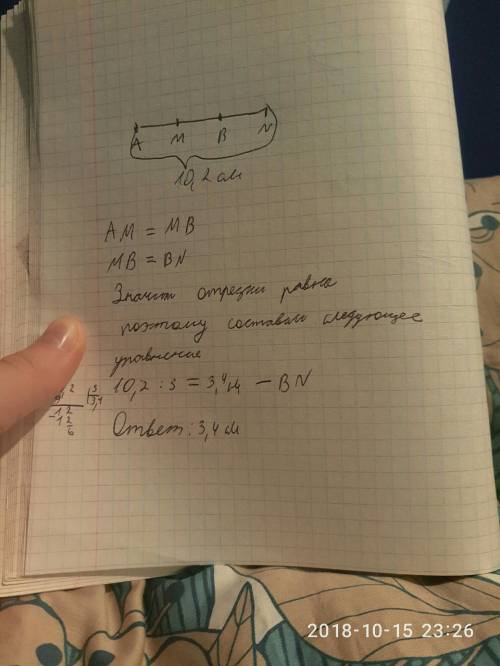 A M B N
10,2 см
AM = MB
MB = BN
Значит отрезки равны
поэтому составим следующее
уравнение
10,2 : 3 = 3,4 см — BN
Ответ: 3,4 см
2018-10-15 23:26